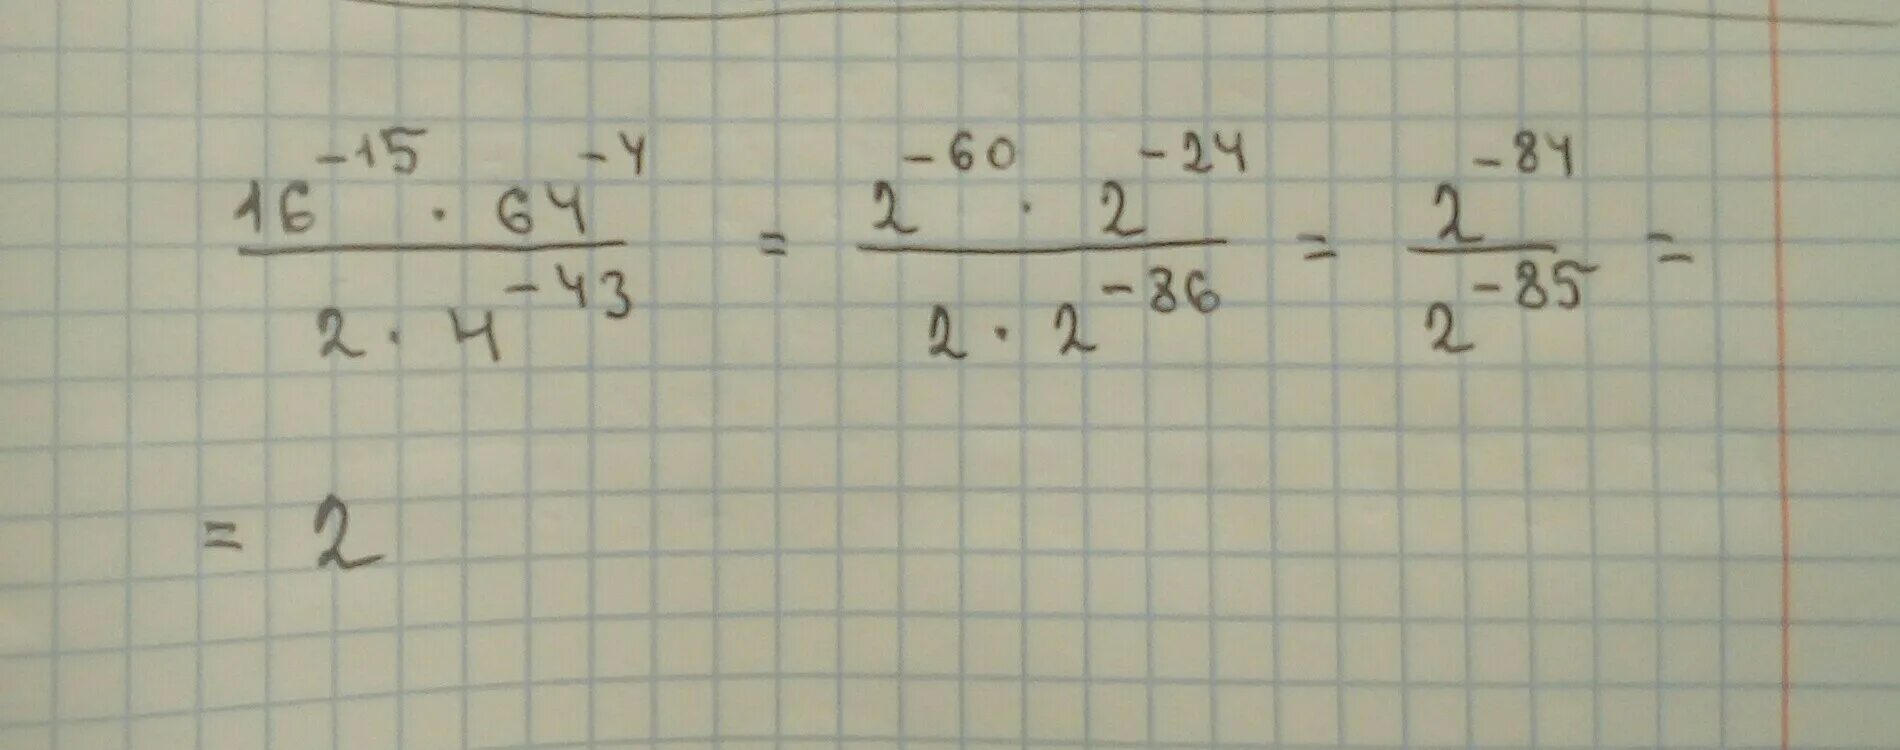 16^{-15} · 64^{-4} / 2 · 4^{-43} = 2^{-60} · 2^{-24} / 2 · 2^{-86} = 2^{-84} / 2^{-85} =
= 2